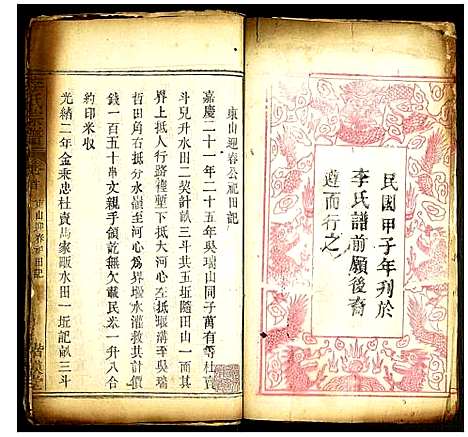 民國甲子年刊於
李氏譜前願後裔
遵而行之
東山迎春公祀田記
嘉慶二十一年二十五年吳瑞山同子萬有等杜賣
斗兒升水田二契計畝三斗共五坵隨田山一面其
界上抵人行路裡下抵大河心左抵大嶺至吳瑞
哲田角右抵分水嶺至河心為界堰水灌救共計價
錢一百五十串文親手領訖無欠載民米一升八合
約印米收
光緒二年金乘忠杜賣馬家甌水田一坵記畝三斗